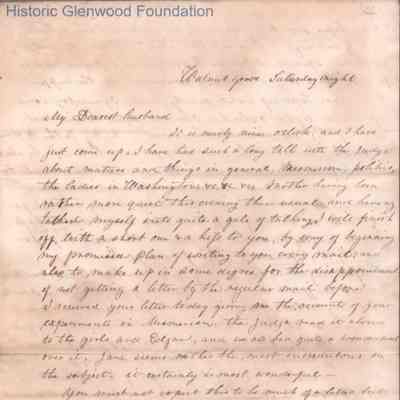 Historic Glenwood Foundation
Walnut grove Saturday night
My Dearest husband
It is nearly nine oclock, and I have
just come up. I have has such a long talk with the Judge
about matters and things in general, Mesmerism, politics,
the ladies in Washington &c &c &c Mother having been
rather more quiet this evening than usual and having
talked myself into quite a gale of talking, I will finish
off with a short one & a kiss to you, by way of beginning
my promised plan of writing to you every mail, and
also to make up in some degree for the disappointment
of not getting a letter by the regular mail before
I received your letter today giving me the accounts of your
experiments in Mesmerism, the Judge read it aloud
to the girls and Edgar, and we had quite a
over it. Jane seems rather the most incredulous on
the subject. it certainly is most wonderful —
You must not expect this to be much of a letter